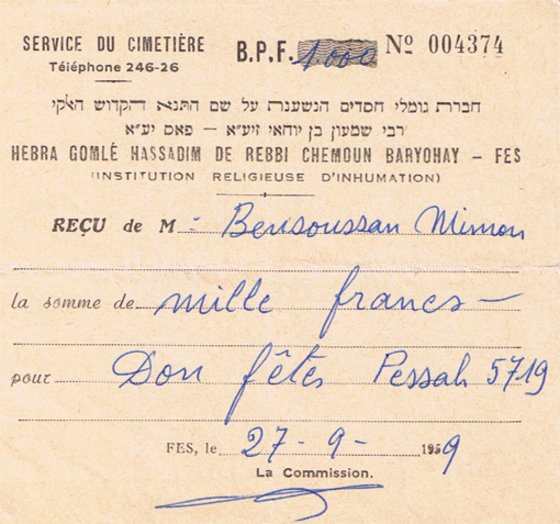 SERVICE DU CIMETIÈRE
Téléphone 246-26
B.P.F. 1000 Nº 004374
חברת גומלי חסדים הנשענת על שם התנא הקדוש האקי
רבי שמעון בן יוחאי זיע״א — פאס יע״א
HEBRA GOMLÉ HASSADIM DE REBBI CHEMOUN BARYOHAY – FES
(INSTITUTION RELIGIEUSE D'INHUMATION)
REÇU de M - Bensoussan Mimon
la somme de mille francs –
pour Don fêtes Pessah 5719
FES, le 27 - 9 - 1959
La Commission.